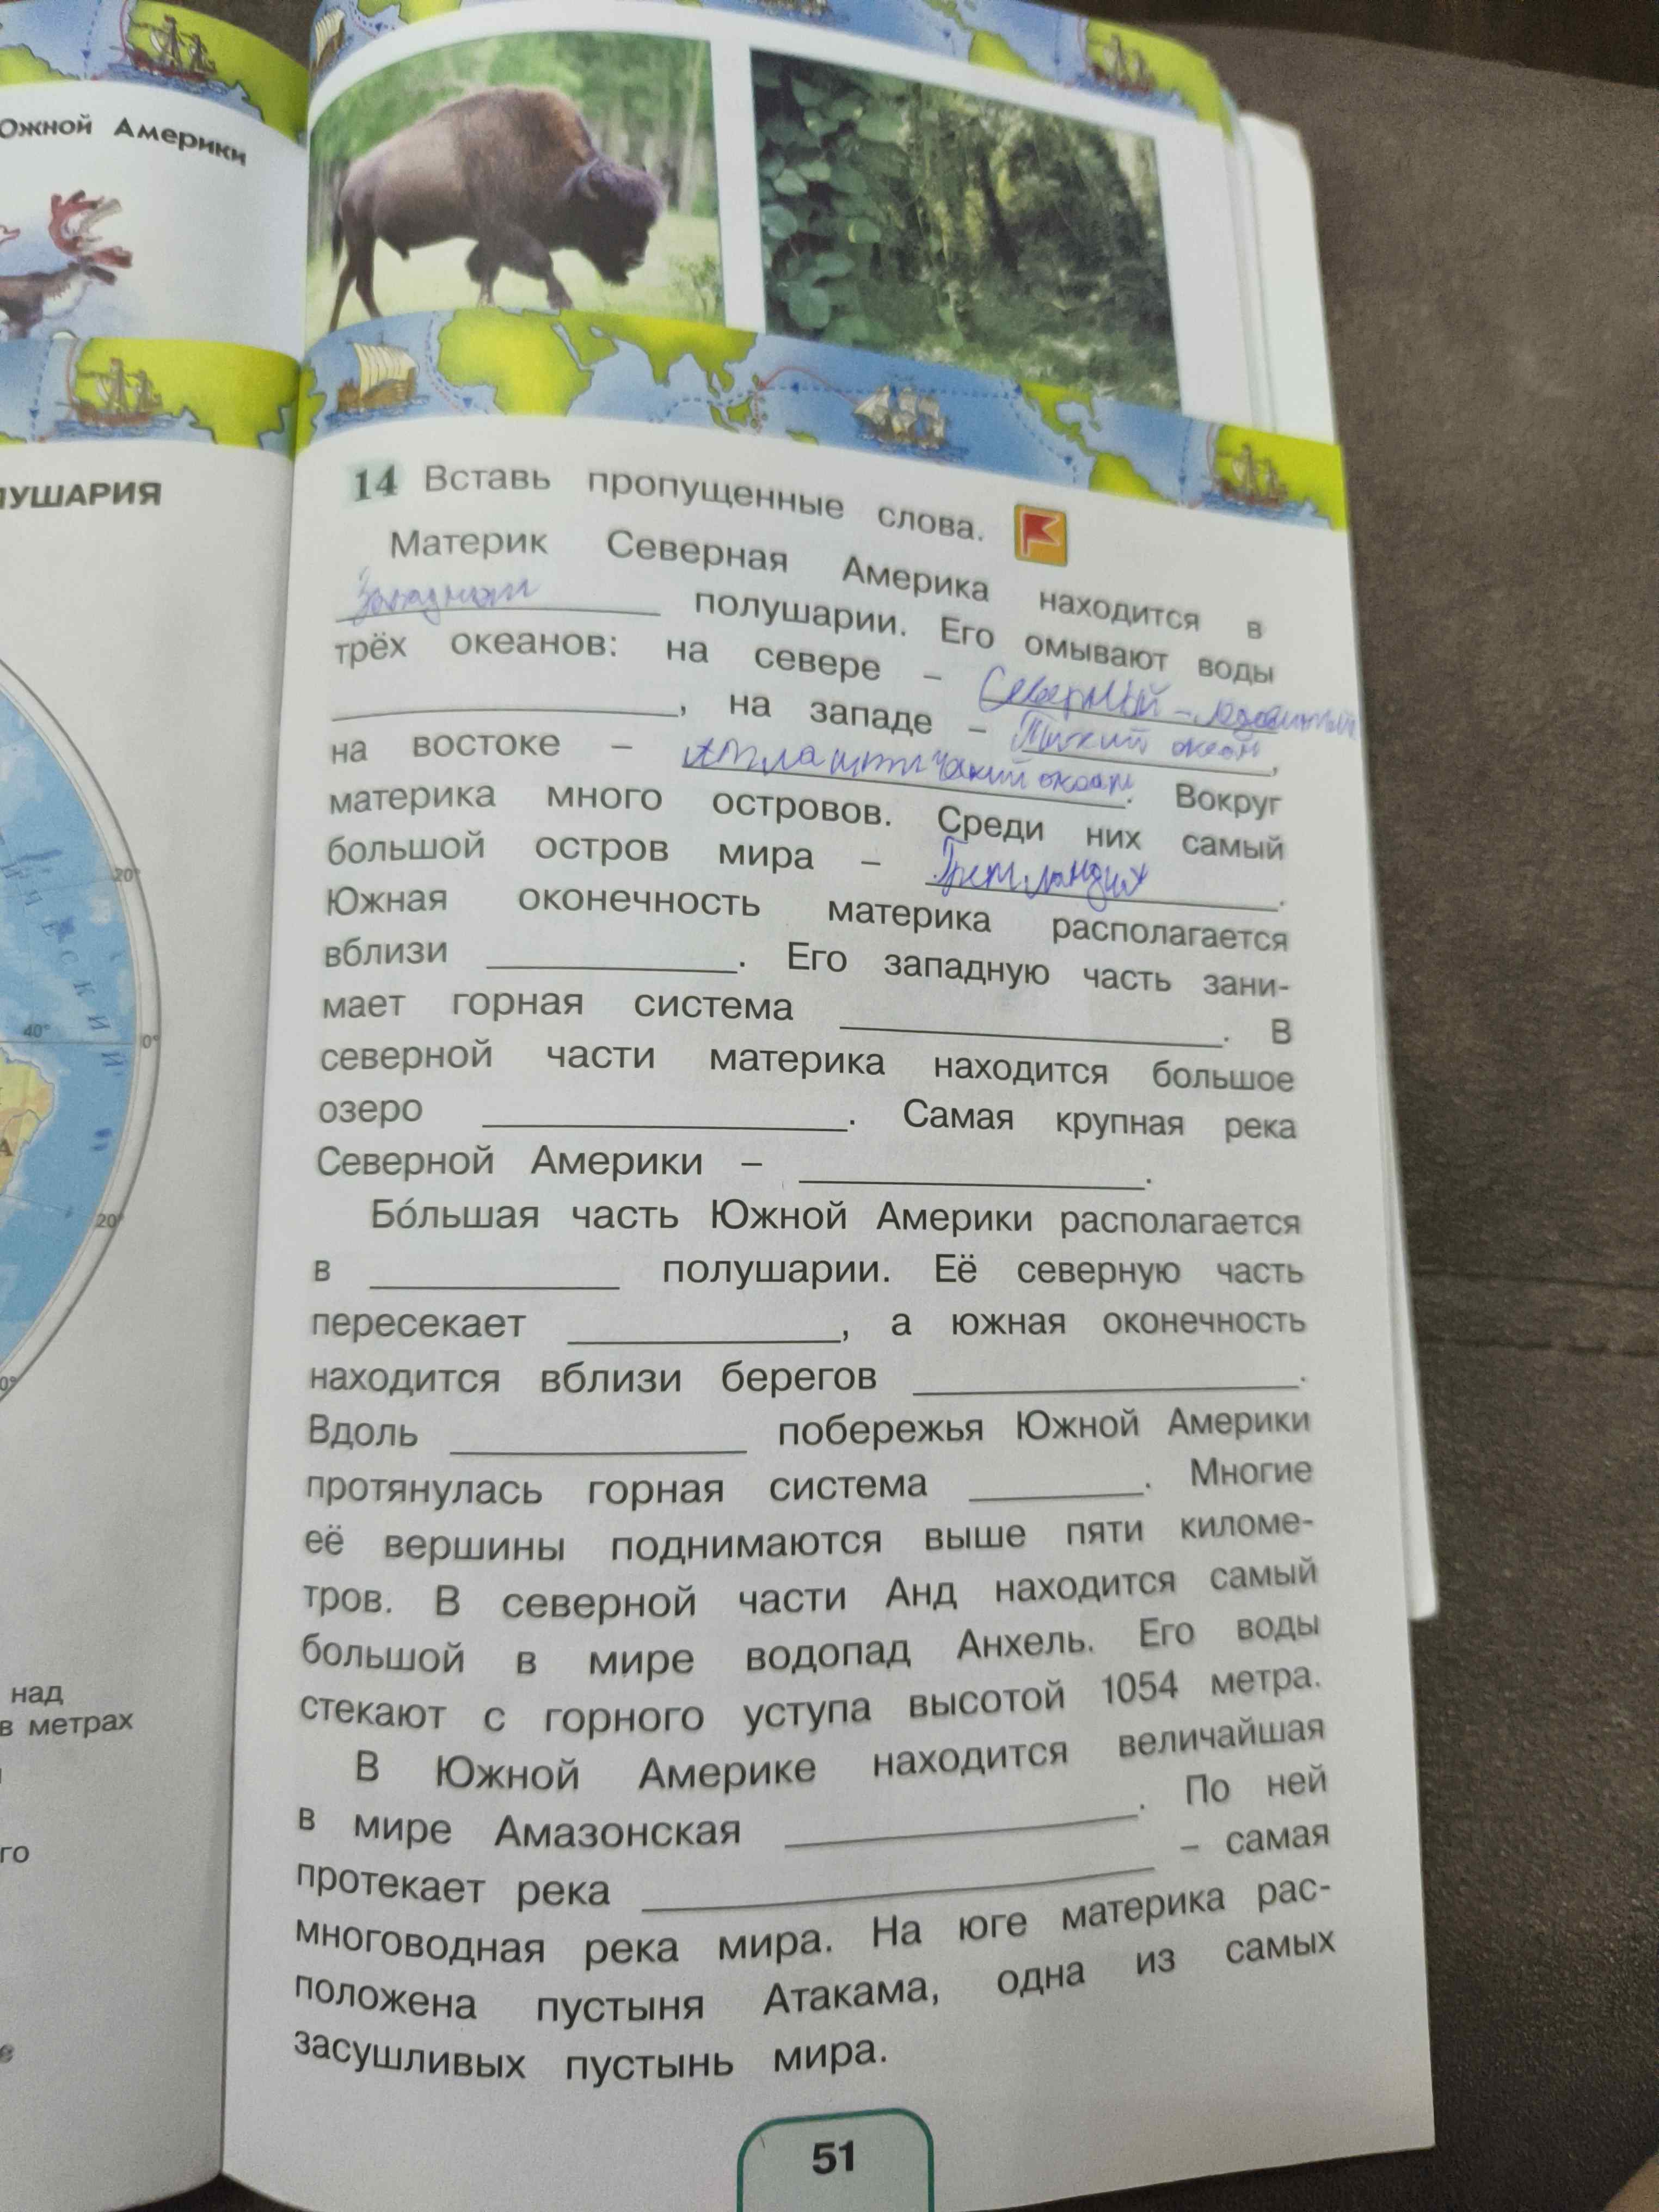 Южной Америки
ЛУШАРИЯ
20°
40°
0°
20°
над
в метрах
го
14 Вставь пропущенные слова.
Материк Северная Америка находится в
Западном полушарии. Его омывают воды
трёх океанов: на севере – Северный-Ледовитый
, на западе – Тихий океан,
на востоке – Атлантический океан. Вокруг
материка много островов. Среди них самый
большой остров мира – Гренландия.
Южная оконечность материка располагается
вблизи . Его западную часть зани-
мает горная система . В
северной части материка находится большое
озеро . Самая крупная река
Северной Америки – .
Бо́льшая часть Южной Америки располагается
в полушарии. Её северную часть
пересекает , а южная оконечность
находится вблизи берегов .
Вдоль побережья Южной Америки
протянулась горная система . Многие
её вершины поднимаются выше пяти киломе-
тров. В северной части Анд находится самый
большой в мире водопад Анхель. Его воды
стекают с горного уступа высотой 1054 метра.
В Южной Америке находится величайшая
в мире Амазонская . По ней
протекает река – самая
многоводная река мира. На юге материка рас-
положена пустыня Атакама, одна из самых
засушливых пустынь мира.
51